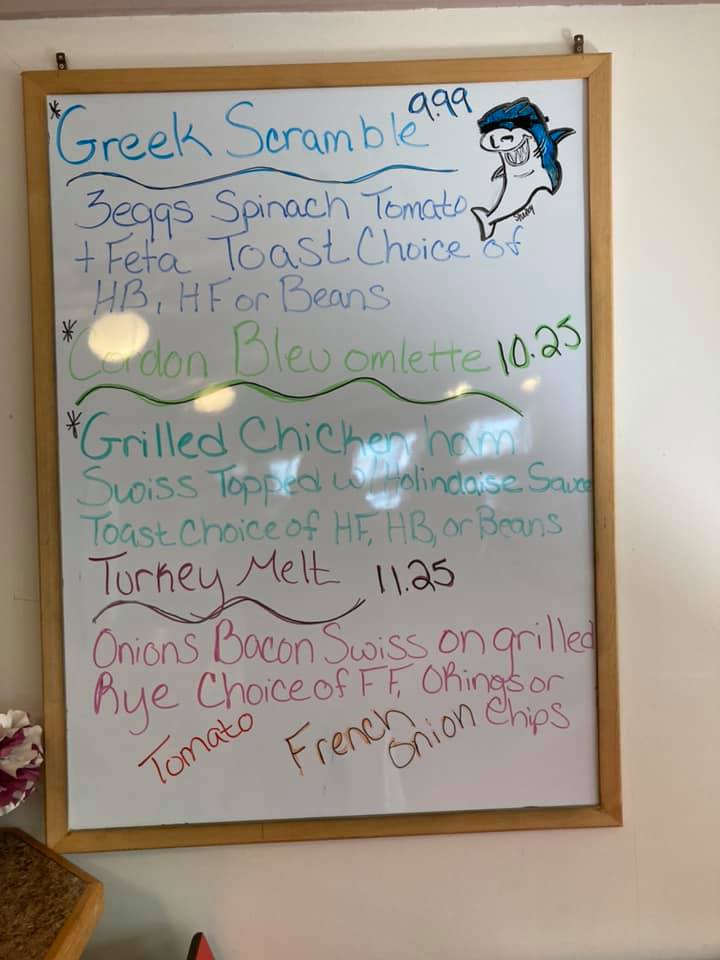 *Greek Scramble 9.99
3eggs Spinach Tomato
+ Feta Toast Choice of
HB, HF or Beans
*Cordon Bleu omlette 10.25
*Grilled Chicken ham
Swiss Topped w/Holindaise Sauce
Toast Choice of HF, HB, or Beans
Turkey Melt 11.25
Onions Bacon Swiss on grilled
Rye Choice of FF, ORings or
Chips
Tomato
French
onion